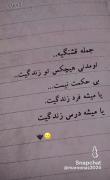 جمله قشنگیه..
اومدنی هیچکس تو زندگیت..
بی حکمت نیست...
یا میشه فرد زندگیت..
یا میشه درس زندگیت
Snapchat